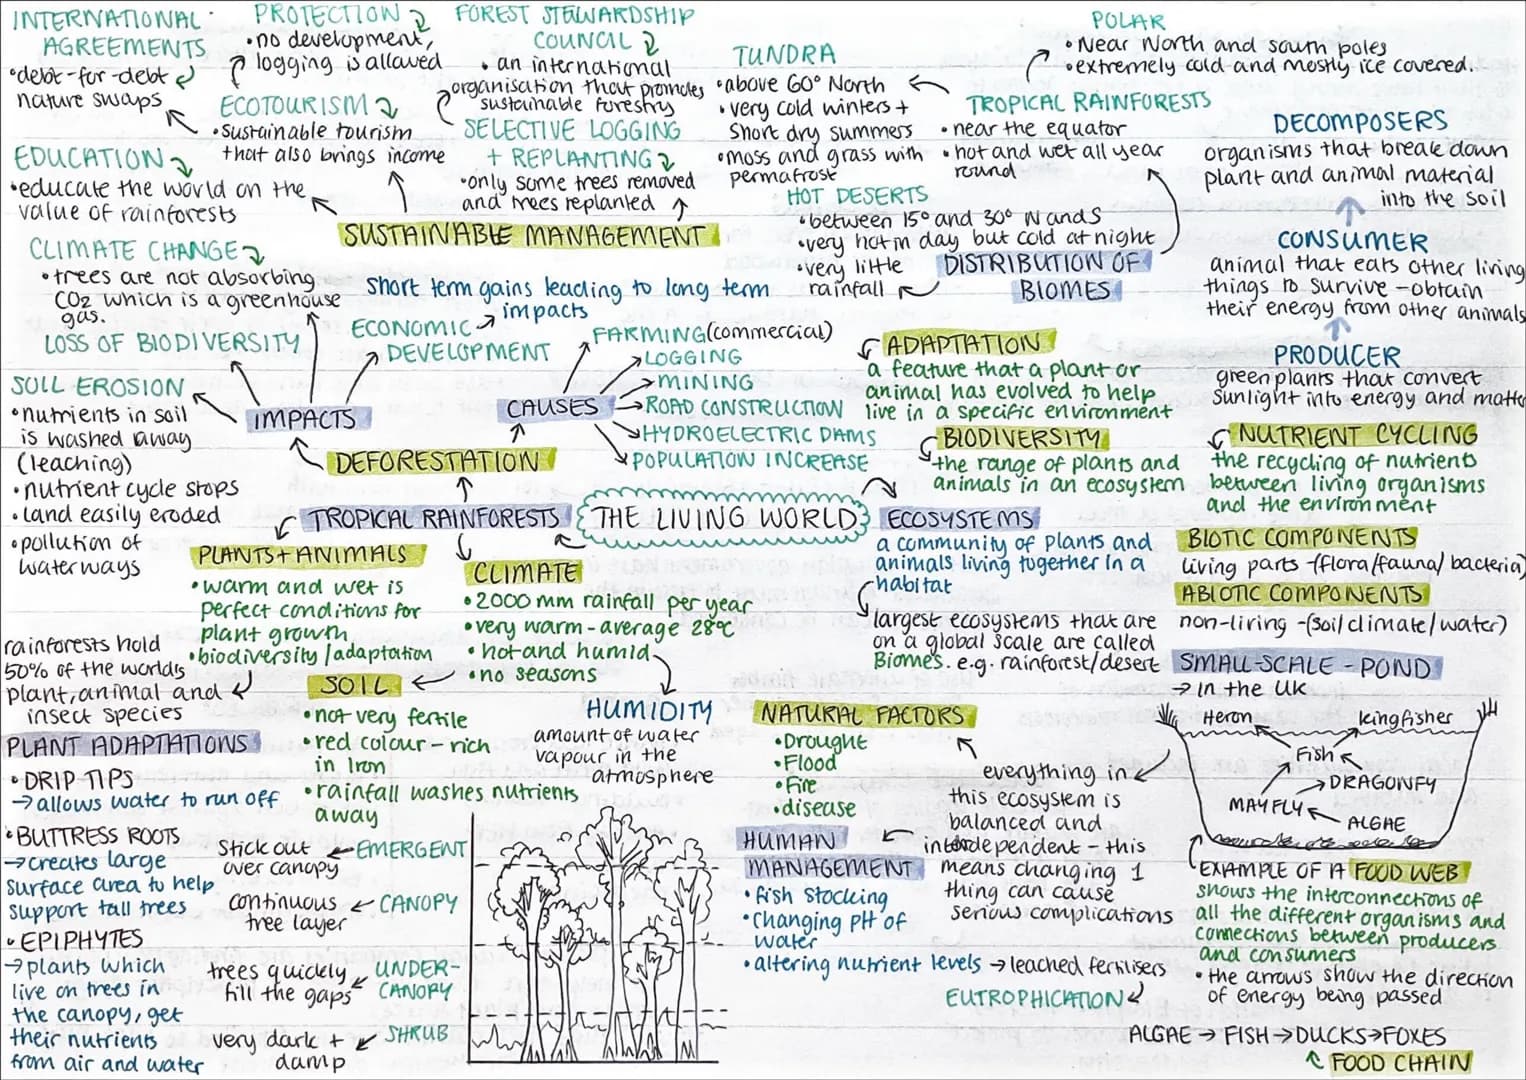 INTERNATIONAL
AGREEMENTS
•debt-for-debt
nature swaps
PROTECTION
•no development,
logging is allowed
FOREST STEWARDSHIP
COUNCIL
•an international
organisation that promotes
sustainable forestry
ECOTOURISM
•sustainable tourism
that also brings income
SELECTIVE LOGGING
+ REPLANTING
•only some trees removed
and trees replanted
EDUCATION
•educate the world on the
value of rainforests
SUSTAINABLE MANAGEMENT
TUNDRA
•above 60° North
•very cold winters +
short dry summers
•moss and grass with
permafrost
POLAR
•Near North and south poles
•extremely cold and mostly ice covered.
TROPICAL RAINFORESTS
•near the equator
•hot and wet all year
round
HOT DESERTS
•between 15° and 30° N and S
•very hot in day but cold at night
•very little
rainfall
DISTRIBUTION OF
BIOMES
DECOMPOSERS
organisms that break down
plant and animal material
into the soil
CONSUMER
animal that eats other living
things to survive - obtain
their energy from other animals
PRODUCER
green plants that convert
sunlight into energy and
CLIMATE CHANGE
•trees are not absorbing
CO2 which is a greenhouse
gas.
LOSS OF BIODIVERSITY
SOIL EROSION
•nutrients in soil
is washed away
(leaching)
•nutrient cycle stops
•land easily eroded
•pollution of
waterways
short term gains leading to long term
impacts
ECONOMIC
DEVELOPMENT
IMPACTS
CAUSES
FARMING (commercial)
LOGGING
MINING
ROAD CONSTRUCTION
HYDROELECTRIC DAMS
POPULATION INCREASE
DEFORESTATION
TROPICAL RAINFORESTS
THE LIVING WORLD
ECOSYSTEMS
a community of plants and
animals living together in a
habitat
largest ecosystems that are
on a global scale are called
Biomes. e.g. rainforest/desert
ADAPTATION
a feature that a plant or
animal has evolved to help
live in a specific environment
BIODIVERSITY
the range of plants and
animals in an ecosystem
NUTRIENT CYCLING
the recycling of nutrients
between living organisms
and the environment
BIOTIC COMPONENTS
living parts -(flora/fauna/bacteria)
ABIOTIC COMPONENTS
non-living -(soil/climate/water)
PLANTS + ANIMALS
•warm and wet is
perfect conditions for
plant growth
•biodiversity/adaptation
rainforests hold
50% of the worlds
plant, animal and
insect species
CLIMATE
•2000 mm rainfall per year
•very warm - average 28°C
•hot and humid
•no seasons
HUMIDITY
amount of water
vapour in the
atmosphere
SOIL
•not very fertile
•red colour - rich
in Iron
•rainfall washes nutrients
away
PLANT ADAPTATIONS
•DRIP TIPS
→allows water to run off
•BUTTRESS ROOTS
→creates large
surface area to help
support tall trees
•EPIPHYTES
→plants which
live on trees in
the canopy, get
their nutrients
from air and water
stick out ← EMERGENT
over canopy
continuous ← CANOPY
tree layer
trees quickly
fill the gaps
UNDER-
CANOPY
very dark +
damp
SHRUB
NATURAL FACTORS
•Drought
•Flood
•Fire
•disease
everything in
this ecosystem is
balanced and
interdependent - this
means changing 1
thing can cause
serious complications
HUMAN
MANAGEMENT
•fish stocking
•Changing pH of
water
•altering nutrient levels → leached fertilisers
EUTROPHICATION
SMALL-SCALE - POND
→ in the UK
Heron
kingfisher
Fish
DRAGONFY
MAYFLY
ALGAE
EXAMPLE OF A FOOD WEB
shows the interconnections of
all the different organisms and
connections between producers
and consumers
•the arrows show the direction
of energy being passed
ALGAE → FISH → DUCKS → FOXES
FOOD CHAIN